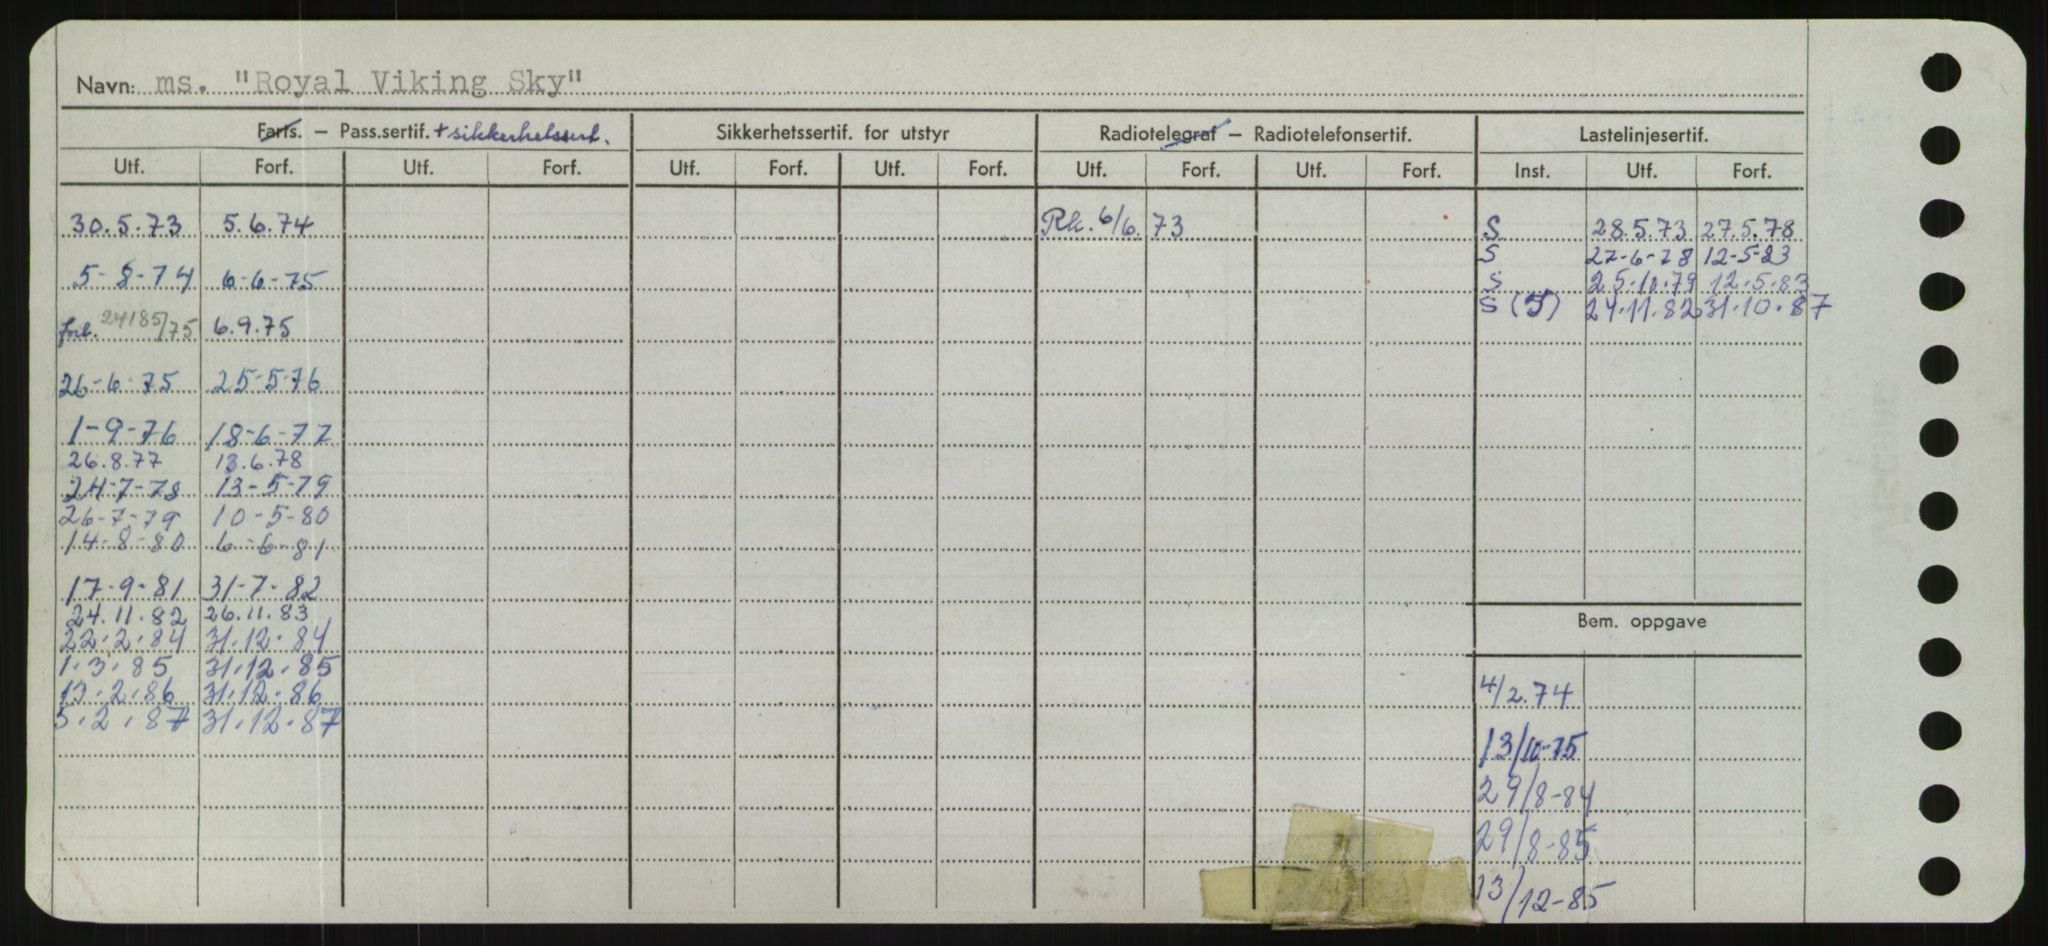 Navn: ms. "Royal Viking Sky"
Farts. – Pass.sertif. + sikkerhetssert. Sikkerhetssertif. for utstyr Radiotelegraf – Radiotelefonsertif. Lastelinjesertif.
Utf. Forf. Utf. Forf. Utf. Forf. Utf. Forf. Utf. Forf. Utf. Forf. Inst. Utf. Forf.
30.5.73 5.6.74 Rk. 6/6. 73 S 28.5.73 27.5.78
S 27-6-78 12-5-83
5-8-74 6-6-75 S 25.10.79 12.5.83
forl. 24185/75 6.9.75 S (5) 24.11.82 31.10.87
26-6-75 25-5-76
1-9-76 18-6-77
26.8.77 13.6.78
24-7-78 13-5-79
26-7-79 10-5-80
14-8-80 6-6-81
17-9-81 31-7-82
24.11.82 26.11.83
Bem. oppgave
22.2.84 31.12.84
1.3.85 31.12.85
13.2.86 31.12.86
4/2.74
5.2.87 31.12.87
13/10-75
29/8-84
29/8-85
13/12-85